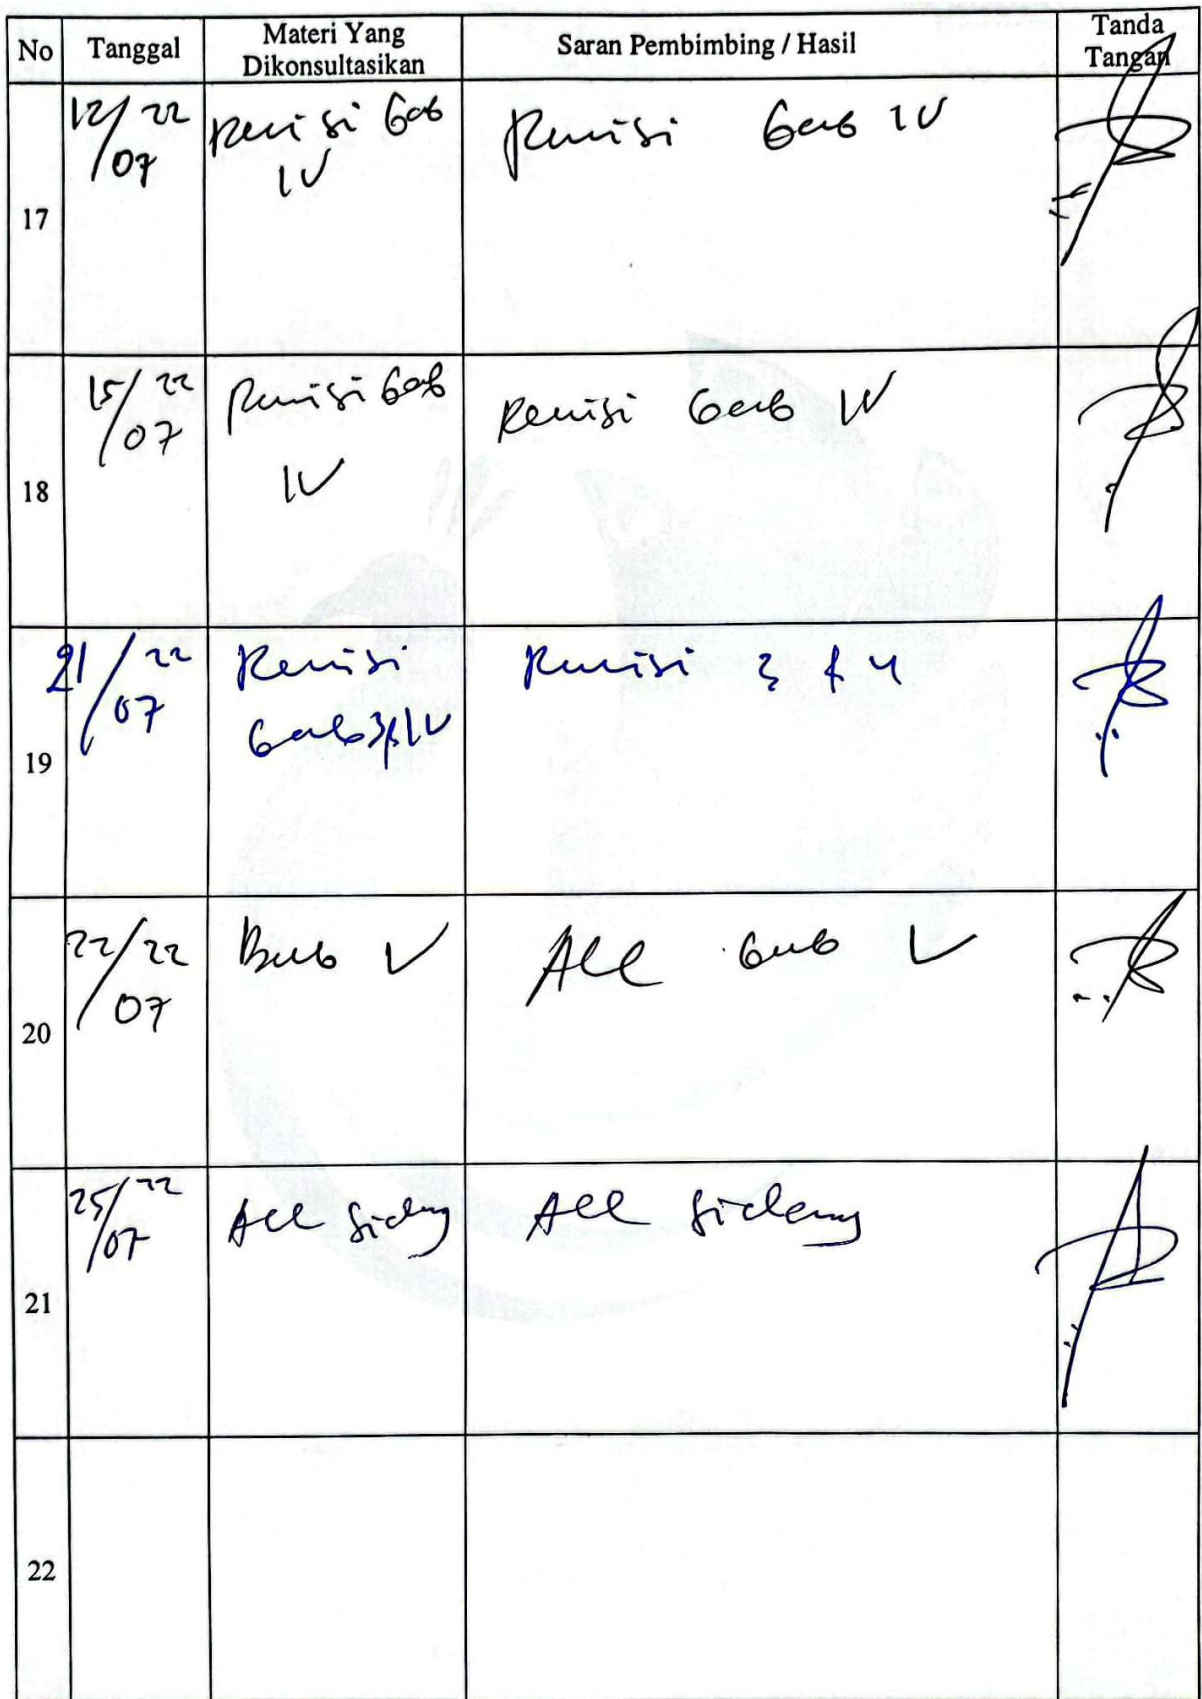 No Tanggal Materi Yang Dikonsultasikan Saran Pembimbing / Hasil Tanda Tangan
17 12/07 22 Revisi bab IV Revisi bab IV
18 15/07 22 Revisi bab IV Revisi bab IV
19 21/07 22 Revisi bab 3 & IV Revisi 3 & 4
20 22/07 22 Bab V Acc bab V
21 25/07 22 Acc Sidang Acc Sidang
22